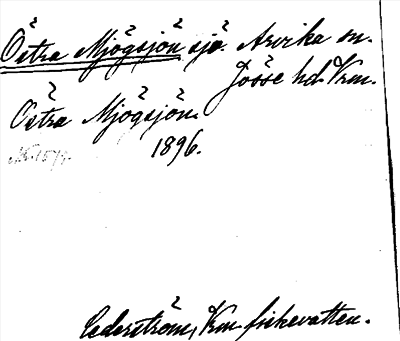 Östra Mjögsjön sjö. Arvika sn.
Jösse hd. Vrm.
Östra Mjögsjön.
1896.
Cederström, Vrm fiskevatten.